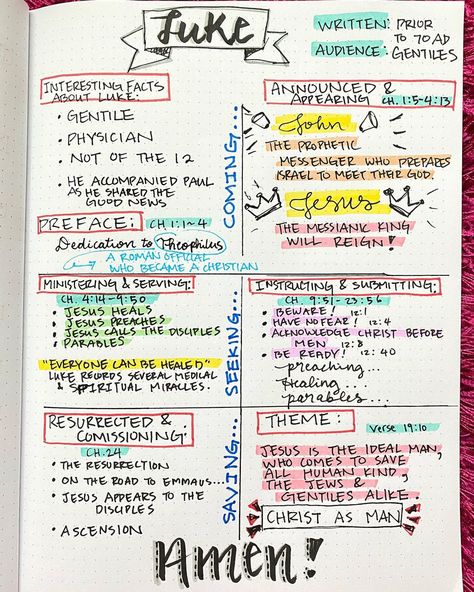 Luke
WRITTEN: PRIOR
TO 70 AD
AUDIENCE: GENTILES
INTERESTING FACTS
ABOUT LUKE:
• GENTILE
• PHYSICIAN
• NOT OF THE 12
• HE ACCOMPANIED PAUL
AS HE SHARED THE
GOOD NEWS
PREFACE: CH 1:1-4
Dedication to Theophilus
A ROMAN OFFICIAL
WHO BECAME A CHRISTIAN
COMING...
ANNOUNCED &
APPEARING CH. 1:5-4:13
John
THE PROPHETIC
MESSENGER WHO PREPARES
ISRAEL TO MEET THEIR GOD.
Jesus
THE MESSIANIC KING
WILL REIGN!
MINISTERING & SERVING:
CH. 4:14-9:50
• JESUS HEALS
• JESUS PREACHES
• JESUS CALLS THE DISCIPLES
• PARABLES
"EVERYONE CAN BE HEALED"
LUKE RECORDS SEVERAL MEDICAL
& SPIRITUAL MIRACLES.
SEEKING...
INSTRUCTING & SUBMITTING:
CH. 9:51-23:56
• BEWARE! 12:1
• HAVE NO FEAR! 12:4
• ACKNOWLEDGE CHRIST BEFORE
MEN 12:8
• BE READY! 12:40
preaching...
Healing...
parables...
RESURRECTED &
COMISSIONING:
CH.24
• THE RESURRECTION
• ON THE ROAD TO EMMAUS...
• JESUS APPEARS TO THE
DISCIPLES
• ASCENSION
SAVING...
THEME:
verse 19:10
JESUS IS THE IDEAL MAN,
WHO COMES TO SAVE
ALL HUMAN KIND,
THE JEWS &
GENTILES ALIKE.
CHRIST AS MAN
Amen!